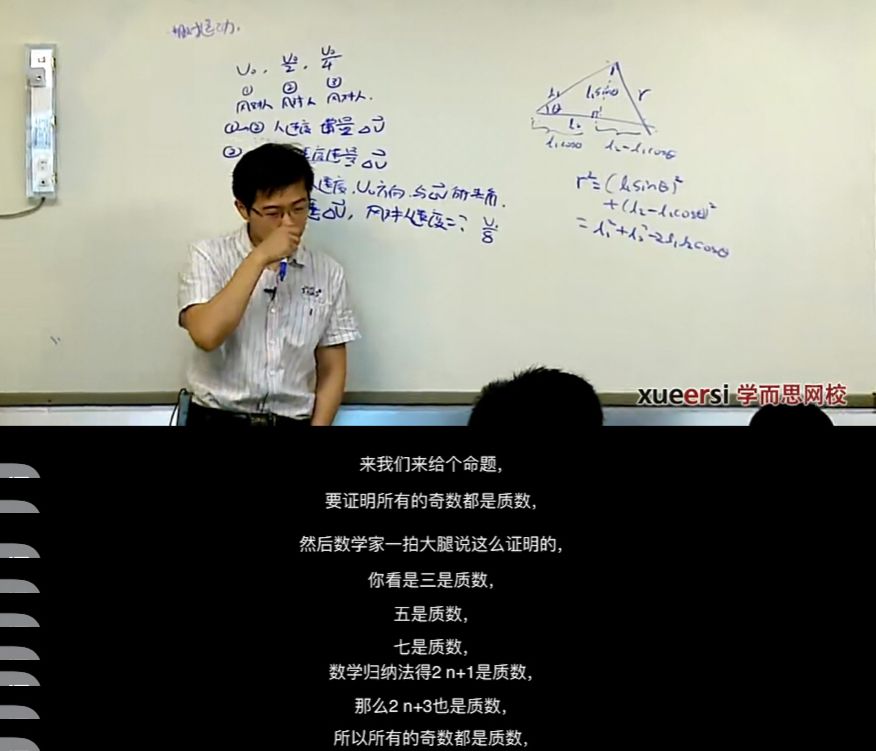 相对运动.
U₀, U₀/2, U₀/4
① ② ③
风对人 风对人 风对人.
①→② 人速度 增量 ΔU⃗
速度, U₀方向 与ΔU⃗的夹角.
ΔU⃗, 风对人速度=? U₀/8
l₁ θ l₁sinθ r
l₂
l₁cosθ l₂-l₁cosθ
r²=(l₁sinθ)²
+(l₂-l₁cosθ)²
=l₁²+l₂²-2l₁l₂cosθ
xueersi 学而思网校
来我们来给个命题,
要证明所有的奇数都是质数,
然后数学家一拍大腿说这么证明的,
你看是三是质数,
五是质数,
七是质数,
数学归纳法得2 n+1是质数,
那么2 n+3也是质数,
所以所有的奇数都是质数,